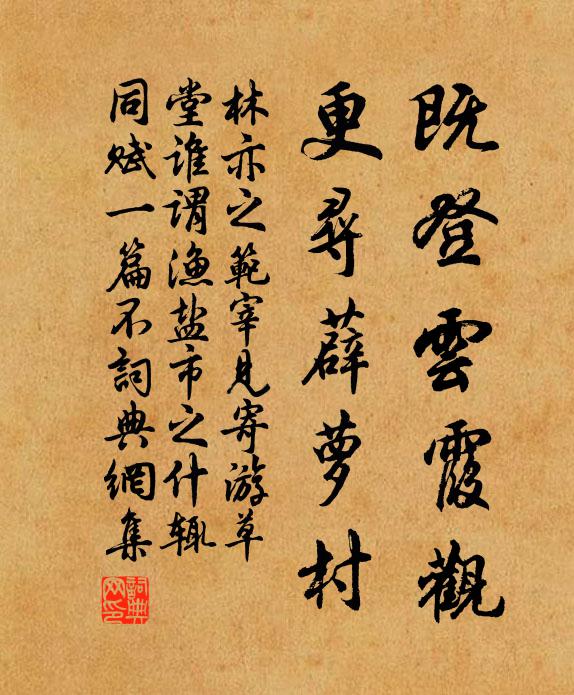 既登雲霞觀
更尋薜蘿村
林亦之範宰見寄游草
堂誰謂漁盐市之什輒
同賦一篇不詞典網集
詞典
网印